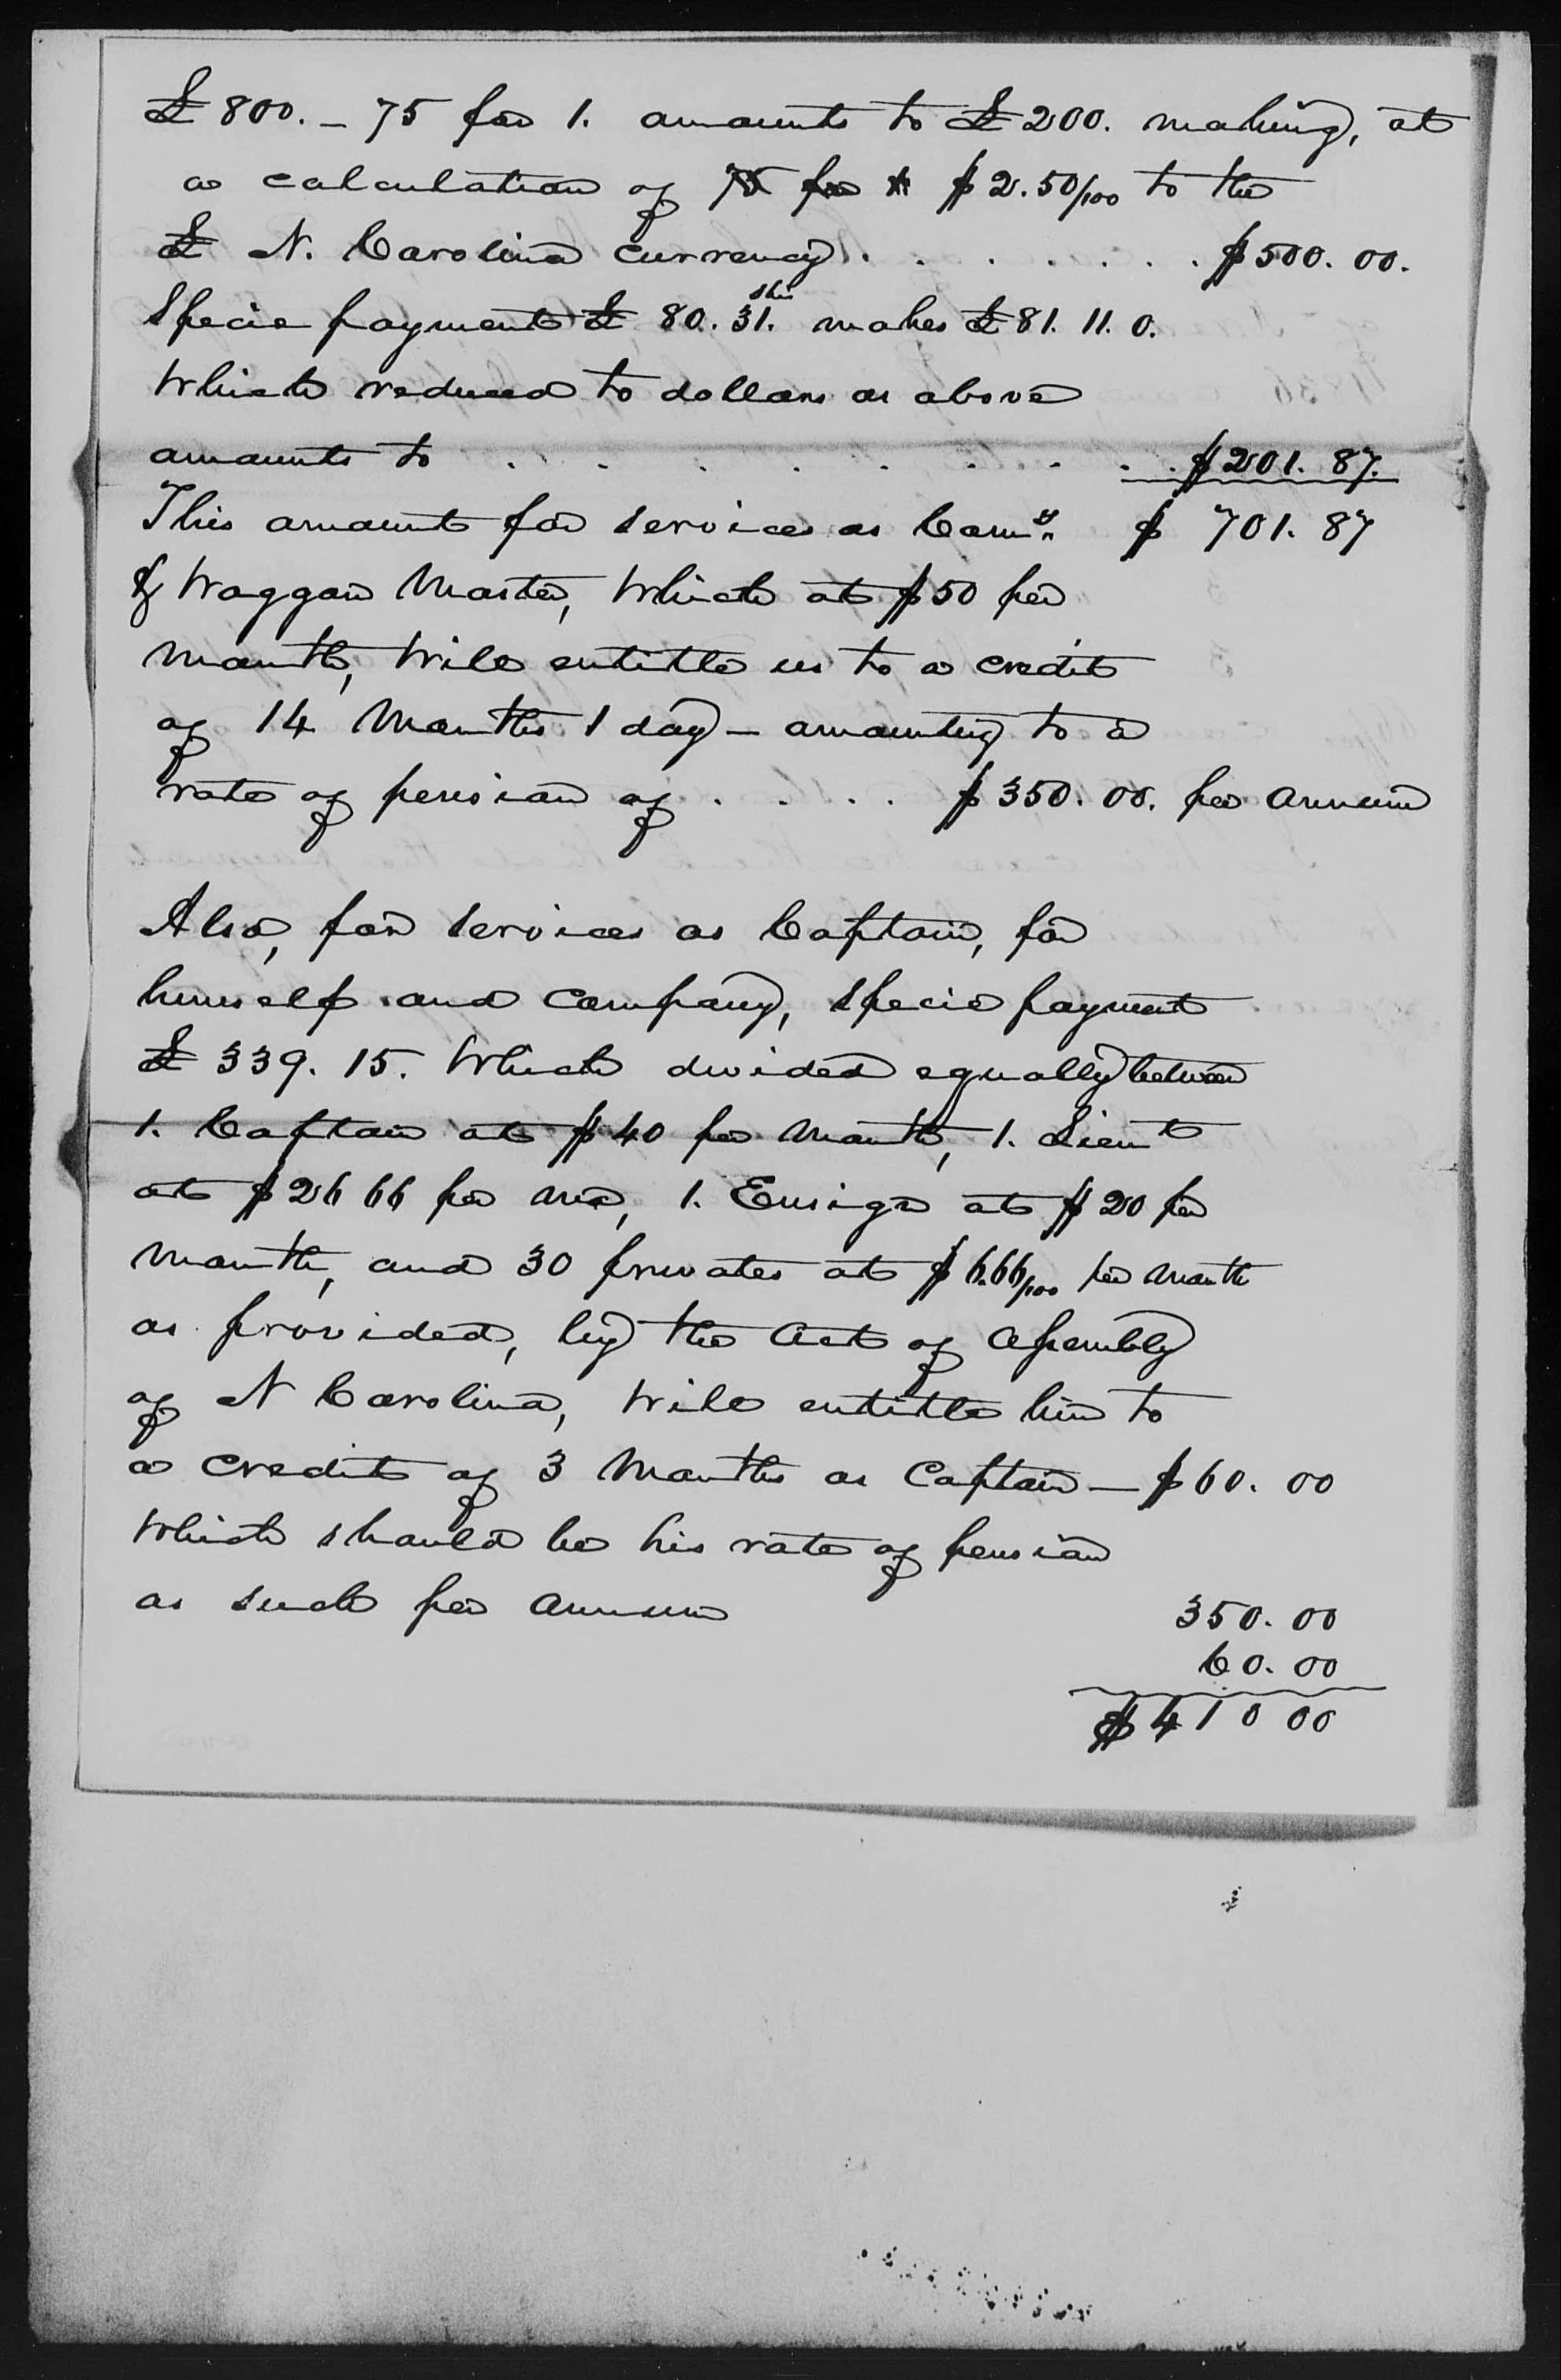 £ 800. – 75 for 1. amounts to £ 200. making, at
a calculation of $ 2.50/100 to the
£ N. Carolina currency . . . . . . . . $ 500. 00.
Specie payments £ 80. 31. shs makes £ 81. 11. 0.
which reduced to dollars as above
amounts to . . . . . . . . . $ 201. 87.
This amount for services as Comy. $ 701. 87
& Waggon Master, which at $ 50 per
month, will entitle us to a credit
of 14 Months 1 day – amounting to a
rate of pension of . . . . $ 350. 00. per annum
Also, for services as Captain, for
himself and company, specie payment
£ 339. 15. which divided equally between
1. Captain at $ 40 per month, 1. Lieut
at $ 26 66 per mo, 1. Ensign at $ 20 per
month, and 30 privates at $ 6.66/100 per month
as provided, by the Act of Assembly
of N Carolina, will entitle him to
a credit of 3 Months as Captain – $ 60. 00
which should be his rate of pension
as such per annum
350. 00
60. 00
$ 410 00